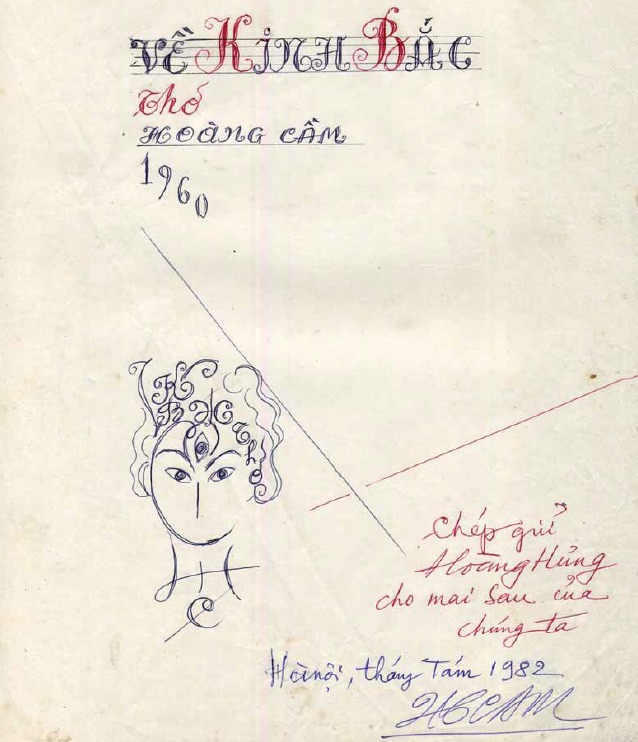 VỀ KINH BẮC
Thơ
HOÀNG CẦM
1960
K
BẮC
Thơ
HC
Chép gửi
Hoàng Hưng
cho mai sau của
chúng ta
Hà nội, tháng Tám 1982
HGCAM